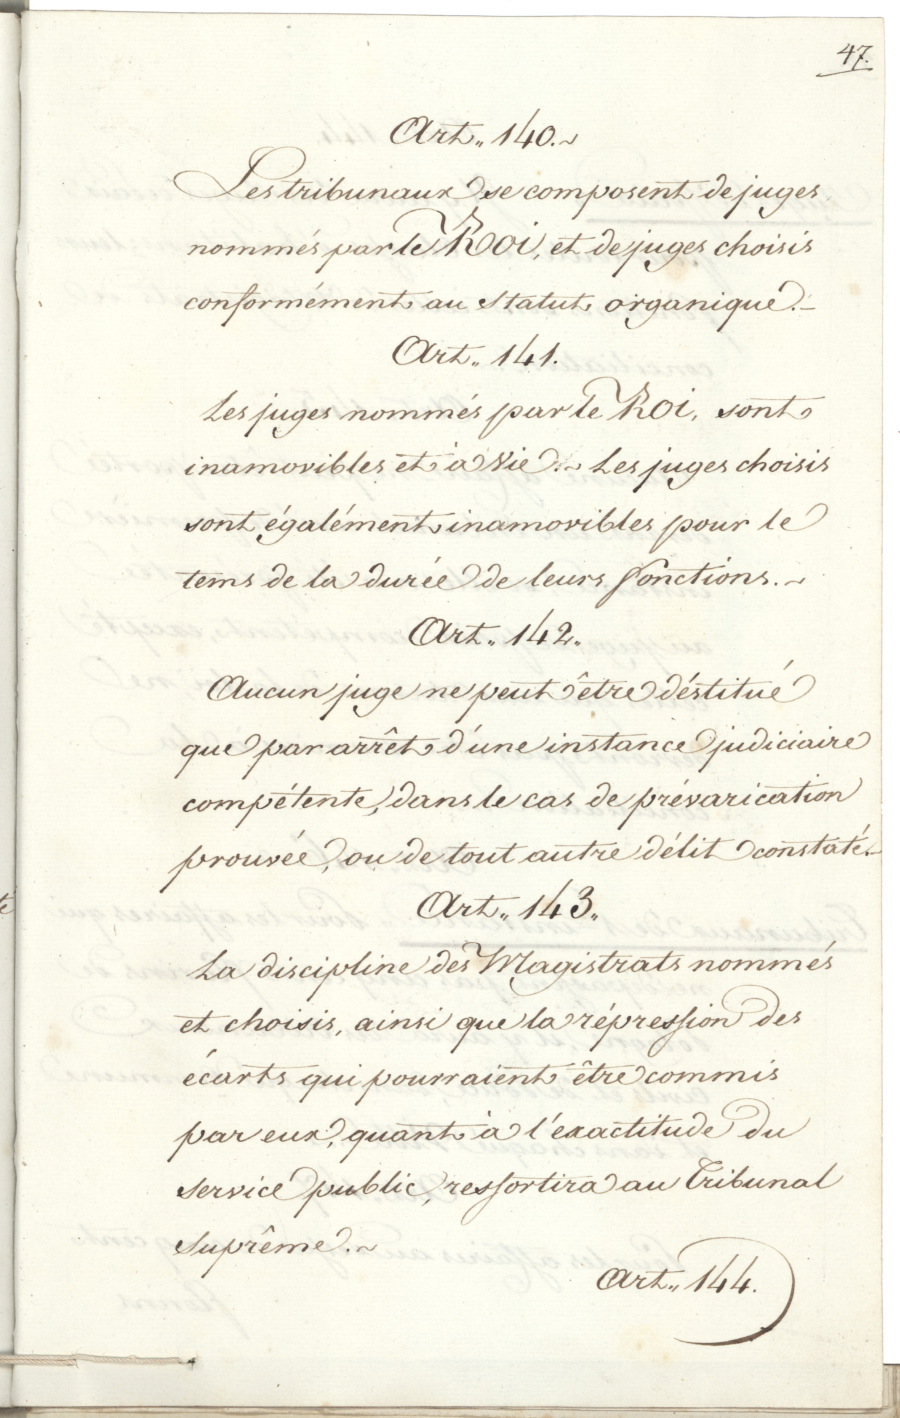 47.
Art. 140.
Les tribunaux se composent de juges
nommés par le Roi, et de juges choisis
conformément au Statut organique.
Art. 141.
Les juges nommés par le Roi, sont
inamovibles et à vie. Les juges choisis
sont également inamovibles pour le
tems de la durée de leurs fonctions.
Art. 142.
Aucun juge ne peut être déstitué
que par arrêt d'une instance judiciaire
compétente, dans le cas de prévarication
prouvée, ou de tout autre délit constaté.
Art. 143.
La discipline des Magistrats nommés
et choisis, ainsi que la répression des
écarts qui pourraient être commis
par eux, quant à l'exactitude du
service public, ressortira au Tribunal
Suprême.
Art. 144.